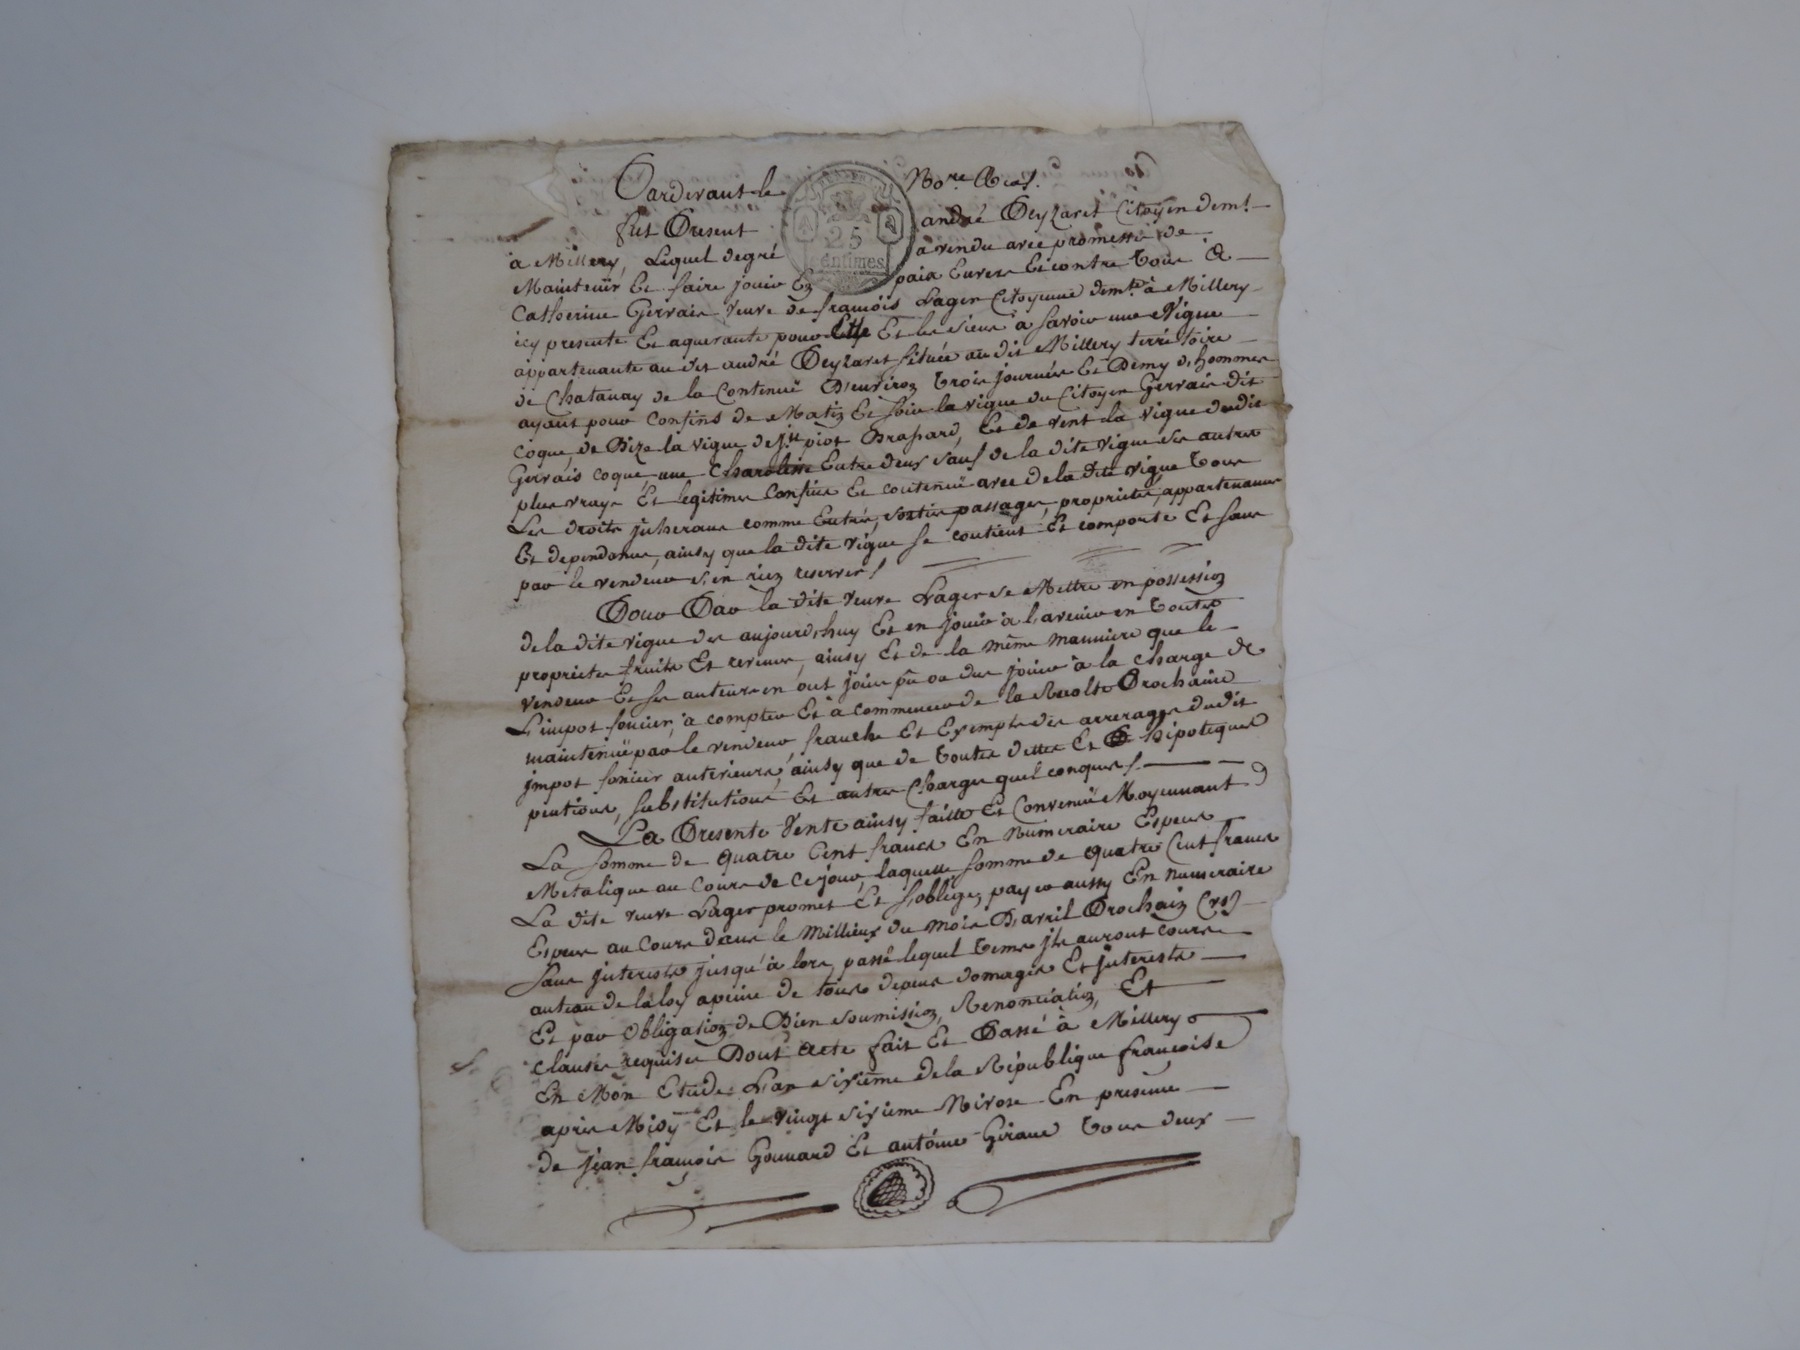 Pardevant le No.re
fut Present andré Deyzaret Citoyen dem.t
à Millery, Lequel degré à vendu avec promesse de
Maintenir Et faire jouir En paix Envers Et contre Tous à
Catherine Gervais veuve de francois Lager Citoyenne dem.te à Millery
icy presente Et aquerante pour Elle Et les siens à savoir une Vigne
appartenante au dit andré Deyzaret située audit Millery territoire
de Chatanay de la Contenuë D'environ trois journées Et Demy d'hommes
ayant pour Confins de Matin Et soir la vigne du Citoyen Gervais dit
coque, de Bize la vigne de piot Brassard, Et de vent la vigne dudit
Gervais coque, une Entre deux sauf de la dite vigne ses autres
plus vrays Et legitimes Confins Et contenuë avec De la dite vigne tous
Les droits juherans comme Entrée, sortie passages, proprietés, appartenances
Et dependances, ainsy que la dite vigne se contient Et comporte Et sans
par le vendeur s'en rien reserver /
Pour Par la dite veuve Lager se Mettre en possession
de la dite vigne des aujourd'huy Et en jouir à l'avenir en toutes
proprietés fruits Et revenus, ainsy Et de la même manniere que le
vendeur Et ses auteurs en ont jouis pû ou dus jouir à la charge de
L'impot foncier, à compter Et à commencer de la Recolte Prochaine
maintenuë par le vendeur, franche Et Exempte des arrerages dudit
jmpot foncier anterieurs, ainsy que de toutes dettes Et hipoteques
pentions, substitutions Et autres Charges quelconques /
La Presente Vente ainsy faitte Et Convenuë Moyennant
La somme de quatre Cent francs En Numeraire Especes
Metalique au Cours de Ce jour, laquelle somme de quatre Cent francs
La dite veuve Lager promet Et s'oblige, payer aussy En numeraire
Especes au Cours dans le Millieux du mois D'avril Prochain (vs)
sans jnterests jusqu'à lors, passé lequel tems jls auront cours
auteau de la loy apeine de tous depens domages Et jnterests
Et par Obligation de Bien soumission, Renonciation, Et
clauses requises Dont Acte fait Et Passé à Millery
En Mon Etude L'an sixième de la République françoise
après Midy Et le vingt sixieme Nivose En presence
de jean francois Gonnard Et antoine Giraud tous deux
25
centimes